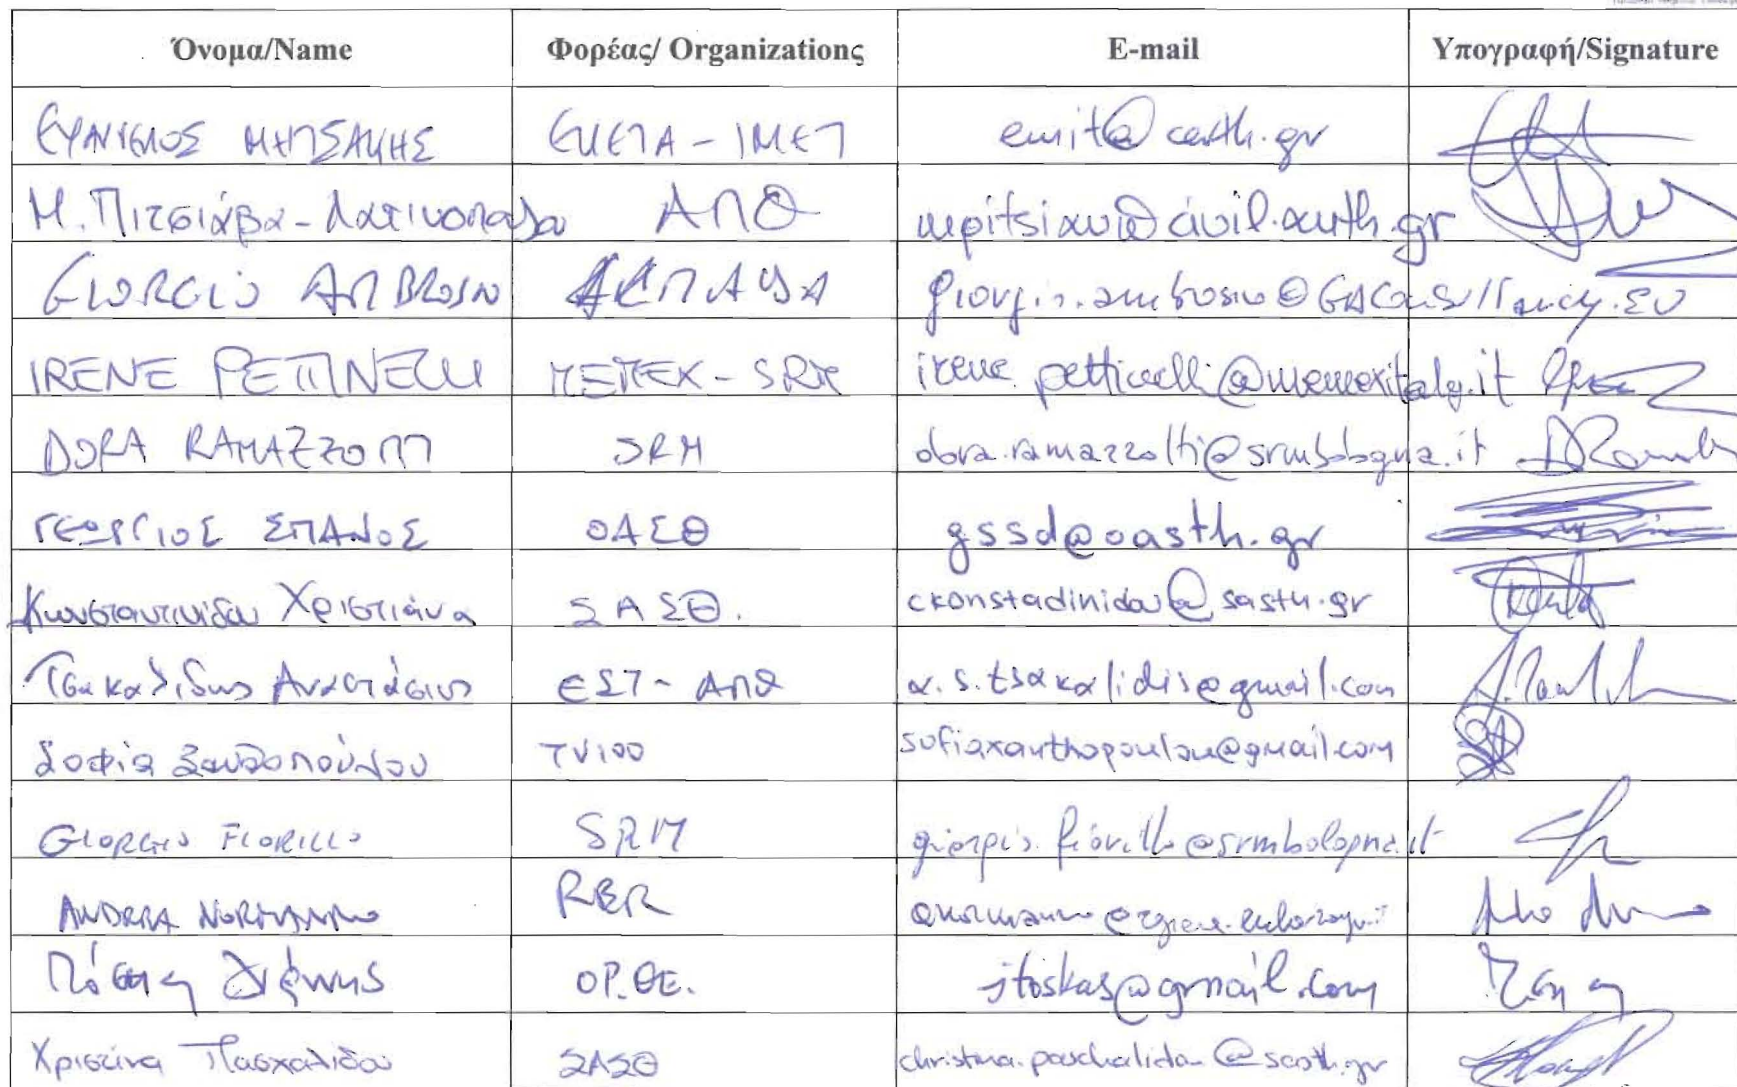 Όνομα/Name Φορέας/ Organizations E-mail Υπογραφή/Signature
ΜΗΤΣΑΚΗΣ ΕΚΕΤΑ - ΙΜΕΤ emit@certh.gr
Μ. Πιτσιάβα - Λατινοπούλου ΑΠΘ mepitsiav@civil.auth.gr
GIORGIO AMBROSINO
IRENE PETTINELLI MEMEX - SRM
DORA RAMAZZOTTI SRM dora.ramazzotti@srmbologna.it
ΓΕΩΡΓΙΟΣ ΣΠΑΝΟΣ ΟΑΣΘ gssd@oasth.gr
Κωνσταντινίδου Χριστιάνα ΣΑΣΘ. ckonstadinidou@sasth.gr
Τσακαλίδης Αναστάσιος ΕΣΤ - ΑΠΘ a.s.tsakalidis@gmail.com
Σοφία Ξανθοπούλου TV100 sofiaxanthopoulou@gmail.com
GIORGIO FIORILLO SRM giorgio.fiorillo@srmbologna.it
ANDREA NORMANNO RER
ΟΡ.ΘΕ. jtoskas@gmail.com
Χριστίνα Πασχαλίδου ΣΑΣΘ christina.paschalidou@sasth.gr